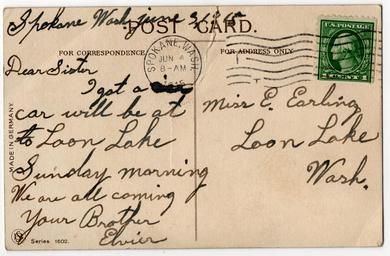 Spokane Wash June 3/
POST CARD.
FOR CORRESPONDENCE
FOR ADDRESS ONLY
SPOKANE, WASH.
JUN 4
8-AM
U.S. POSTAGE
Dear Sister
I got a
car will be at
to Loon Lake
Sunday morning
We are all coming
Your Brother
Elvier
Miss E. Earling
Loon Lake
Wash.
MADE IN GERMANY
Series 1602.